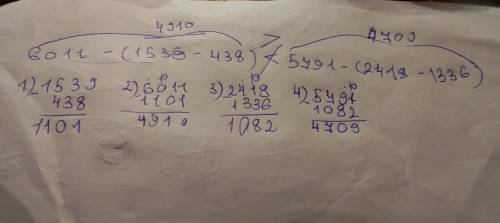 4910 4709
6011 - (1539 - 438) > 5791 - (2418 - 1336)
1) 1539 2) 6011 3) 2418 4) 5791
438 1101 1336 1082
1101 4910 1082 4709